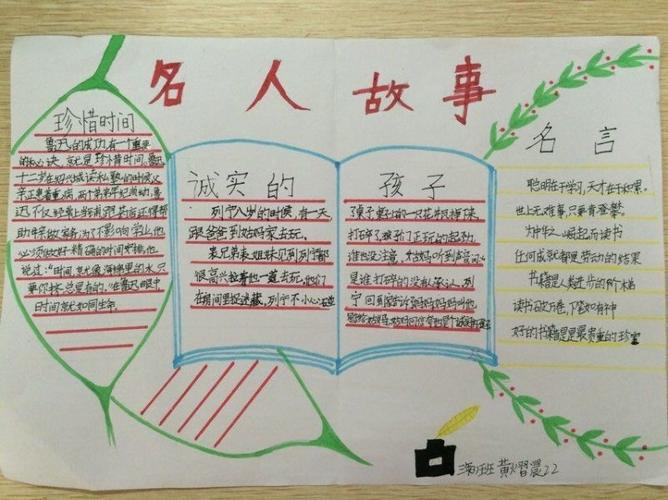 名人故事
珍惜时间
鲁迅的成功,有一个重要
的秘诀,就是珍惜时间。鲁迅
十二岁在绍兴城读私塾的时候,父
亲正患着重病,两个弟弟年纪尚幼,鲁
迅不仅经常上当铺,跑药店,还得帮
助母亲做家务,为了不影响学业,他
必须做好精确的时间安排。他
说过:"时间,就像海绵里的水,只
要你挤,总是有的。"在鲁迅眼中
时间就如同生命。
诚实的
列宁八岁的时候,有一天
跟爸爸到姑妈家去玩。
表兄弟表姐妹见到列宁都
很高兴,拉着他一道去玩。他们
在房间里捉迷藏,列宁不小心
孩子
打碎了。孩子们正玩的起劲,
谁也没注意,大姑妈听到声音
是谁打碎的没有承认。列
宁回到
名言
聪明在于学习,天才在于积累。
世上无难事,只要肯登攀。
为中华之崛起而读书
任何成就都是劳动的结果
书籍是人类进步的阶梯
读书破万卷,下笔如有神
好的书籍是最贵重的珍宝